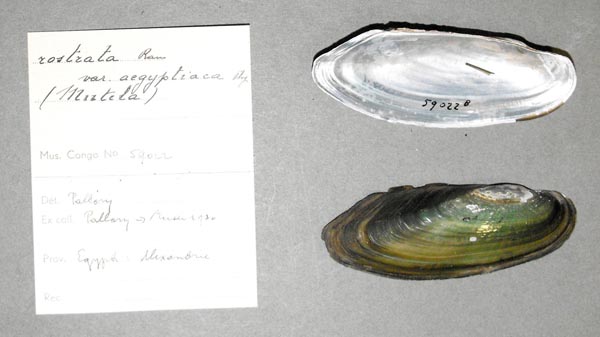 rostrata Ran
var. aegyptiaca
(Mutela)
Mus. Congo No 59022
Dét. Pallary
Ex coll. Pallary
Prov. Egypte : Alexandrie
Rec
59022 B